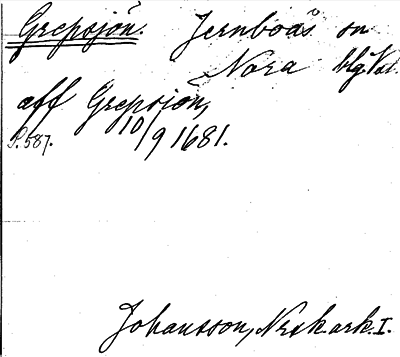 Grepsjön. Jernboås sn
Nora bg. Vstl.
aff Grepsion,
S. 587. 10/9 1681.
Johansson, Norsk. ark. I.